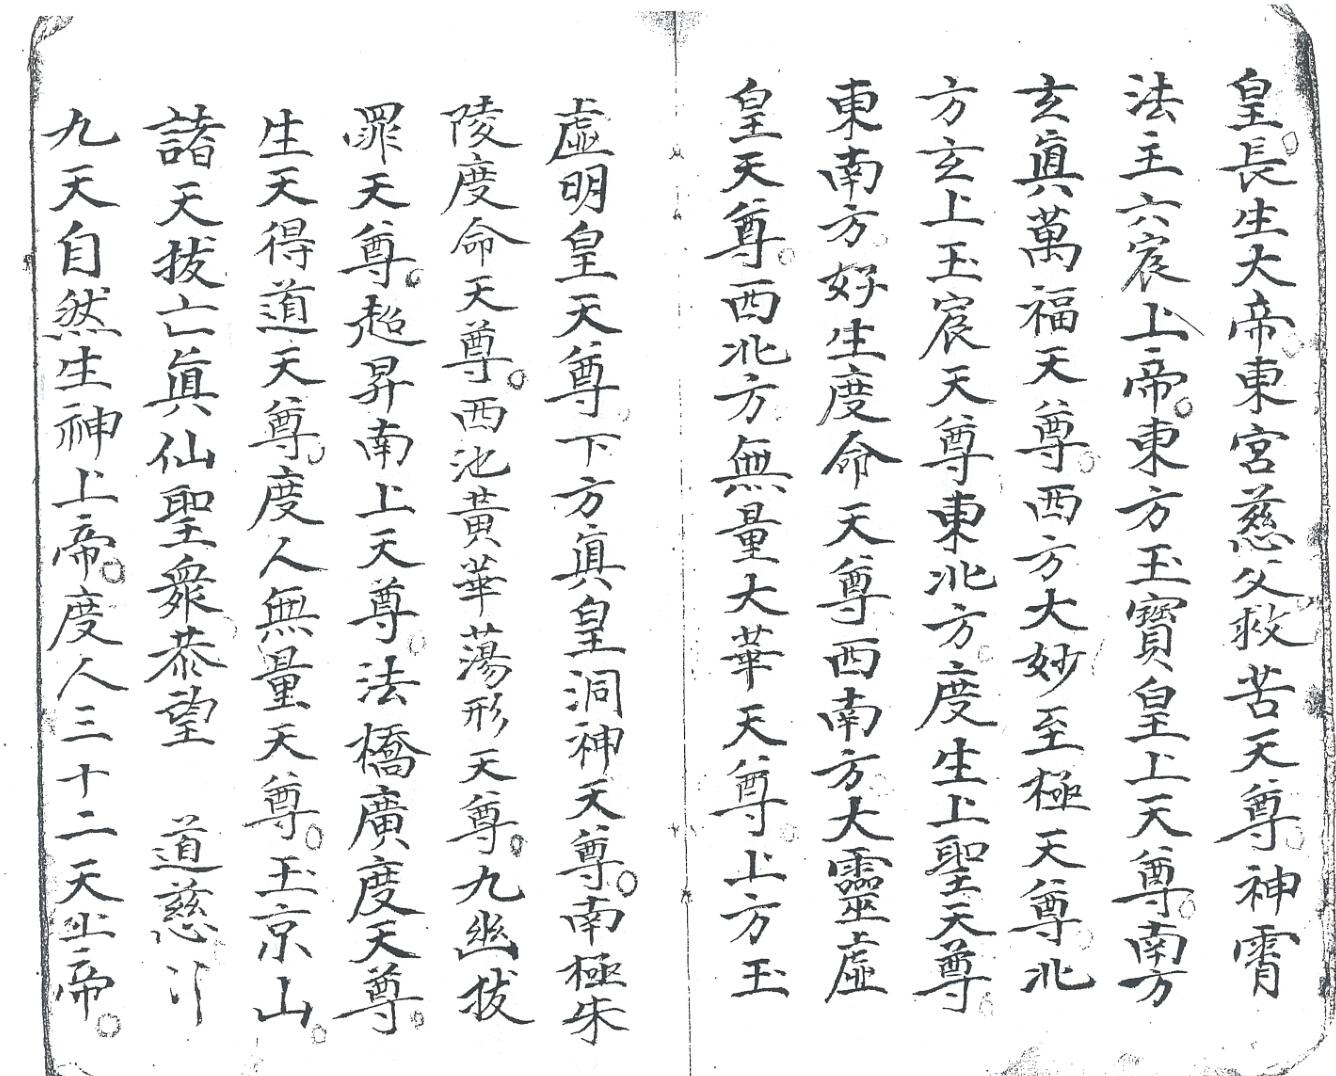 皇長生大帝東宮慈父救苦天尊神霄
法主六宸上帝東方玉寶皇上天尊南方
玄眞萬福天尊西方大妙至極天尊北
方玄上玉宸天尊東北方度生上聖天尊
東南方好生度命天尊西南方大靈虛
皇天尊西北方無量大華天尊上方玉
虛明皇天尊下方眞皇洞神天尊南極朱
陵度命天尊西池黃華蕩形天尊九幽拔
罪天尊超昇南上天尊法橋廣度天尊
生天得道天尊度人無量天尊玉京山
諸天拔亡眞仙聖衆恭望 道慈
九天自然生神上帝度人三十二天上帝